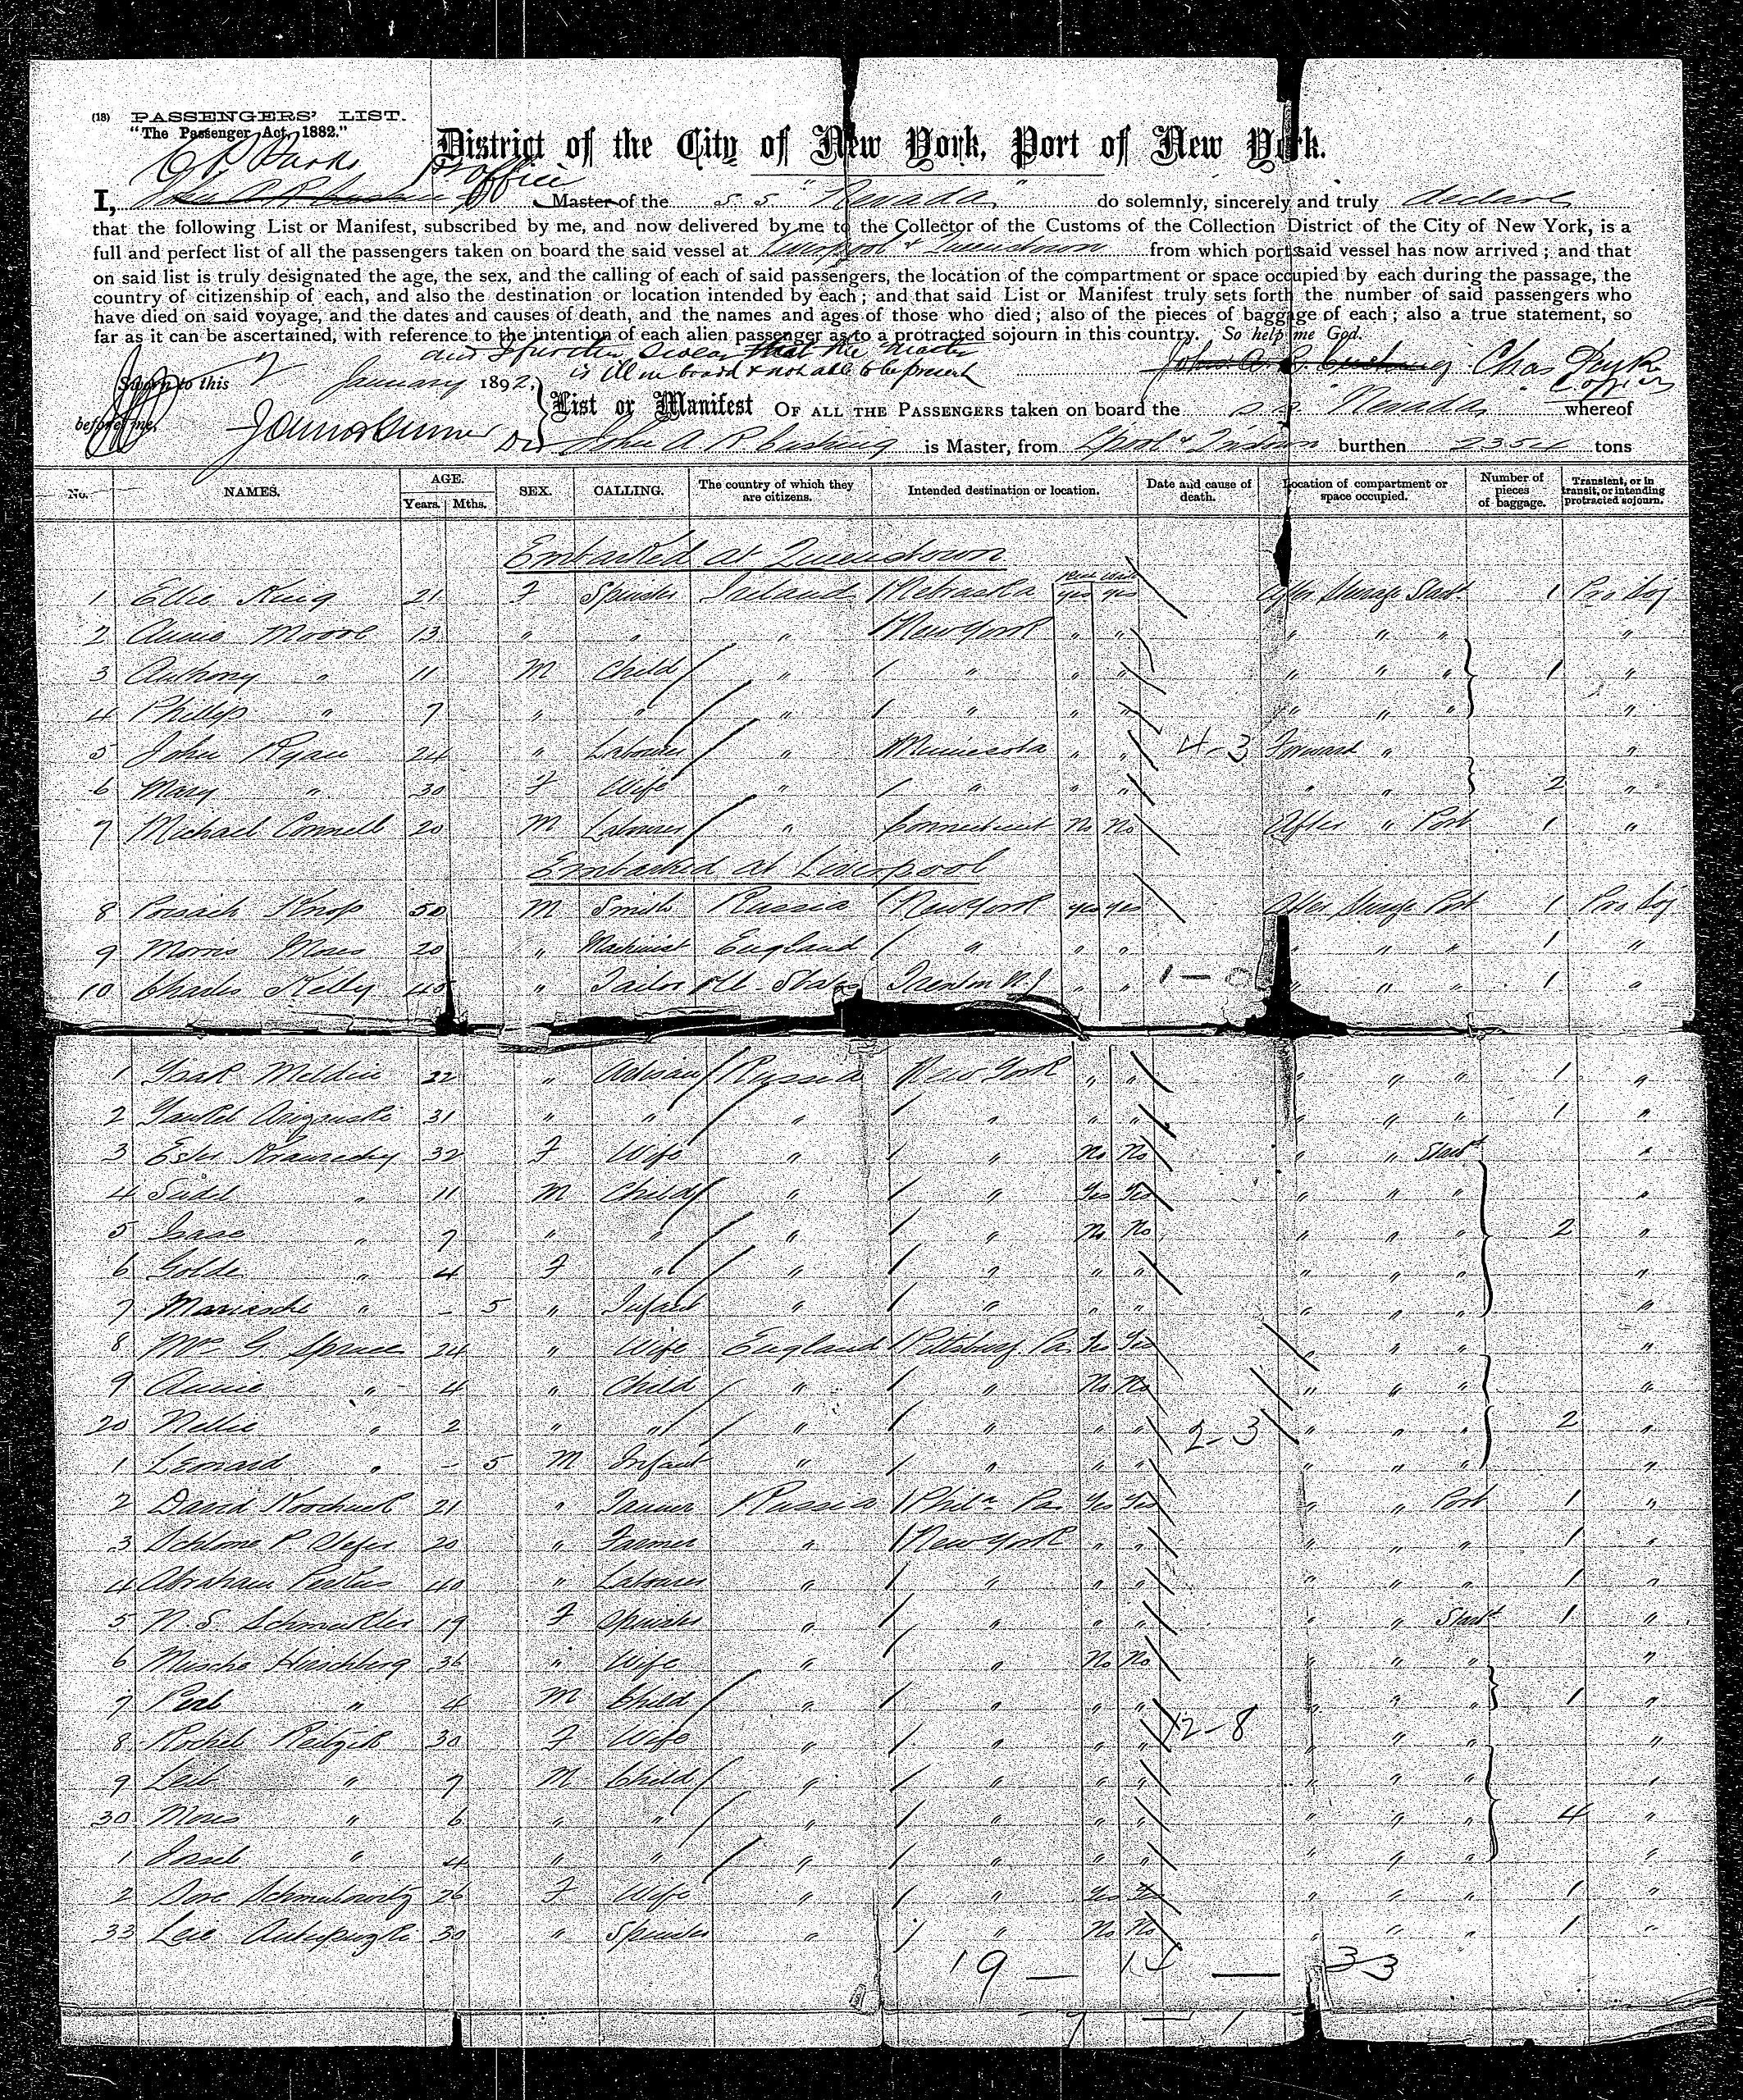 (18) PASSENGERS' LIST.
"The Passenger Act, 1882."
District of the City of New York, Port of New York.
I, Master of the S. S. "Nevada" do solemnly, sincerely and truly declare
that the following List or Manifest, subscribed by me, and now delivered by me to the Collector of the Customs of the Collection District of the City of New York, is a
full and perfect list of all the passengers taken on board the said vessel at Liverpool & Queenstown from which port said vessel has now arrived; and that
on said list is truly designated the age, the sex, and the calling of each of said passengers, the location of the compartment or space occupied by each during the passage, the
country of citizenship of each, and also the destination or location intended by each; and that said List or Manifest truly sets forth the number of said passengers who
have died on said voyage, and the dates and causes of death, and the names and ages of those who died; also of the pieces of baggage of each; also a true statement, so
far as it can be ascertained, with reference to the intention of each alien passenger as to a protracted sojourn in this country. So help me God.
and I further swear that the master
is ill on board & not able to be present
Sworn to this 2 January 1892,
before me,
List or Manifest OF ALL THE PASSENGERS taken on board the S.S. Nevada whereof
John A. R. Cushing is Master, from burthen 2354 tons
No. NAMES. AGE. Years. Mths. SEX. CALLING. The country of which they are citizens. Intended destination or location. Date and cause of death. Location of compartment or space occupied. Number of pieces of baggage. Transient, or in transit, or intending protracted sojourn.
Embarked at Queenstown
1 Ellie King 21 F Spinster Ireland Nebraska yes yes After Steerage Starbd 1 Pro Soj
2 Annie Moore 13 " " " New York " " " " " "
3 Anthony " 11 M Child " " " " " " " 1 "
4 Phillip " 7 " " " " " " " " " "
5 John Ryan 24 " Labourer " Minnesota " " 4-3 Forward " "
6 Mary " 30 F Wife " " " " " " 2 "
7 Michael Connell 20 M Labourer " Connecticut No No After " Port 1 "
Embarked at Liverpool
8 Knop 50 M Smith Russia New York yes yes After Steerage Port 1 Pro Soj
9 Morris Moses 20 " Machinist England " " " " " " 1 "
10 Charles Kelly 45 " Tailor U. States Trenton N.J " " 1-0 " " " 1 "
1 Isak 22 " Artisan Russia New York " " " " " 1 "
2 31 " " " " " " " " " 1 "
3 Ester 32 F Wife " " No No " " Starbd "
4 Seidel " 11 M Child " " Yes Yes " " " "
5 Isaac " 7 " " " " No No " " " 2 "
6 Golde " 4 F " " " " " " " " "
7 " - 5 " Infant " " " " " " " "
8 Mrs G. Spruce 24 " Wife England Pittsburg Pa. Yes Yes " " " "
9 Annie " 4 " Child " " No No " " " "
20 Nellie " 2 " " " " " " 2-3 " " " 2 "
1 Leonard " - 5 M Infant " " " " " " " "
2 David 21 " Russia Phila Pa. Yes Yes " " Port 1 "
3 20 " Farmer " New York " " " " " 1 "
4 Abraham Perkus 40 " Labourer " " " " " " " 1 "
5 N. S. Schmukler 19 F Spinster " " " " " " Starbd 1 "
6 Musche Hirschberg 36 " Wife " " No No " " " "
7 " 4 M Child " " " " " " " 1 "
8 Rochel 30 F Wife " " " " 12-8 " " " "
9 Leib " 7 M Child " " " " " " " "
30 Moses " 6 " " " " " " " " " 4 "
1 " 4 " " " " " " " " " "
2 26 F Wife " " Yes " " " 1 "
33 30 " Spinster " " No No " " " 1 "
19 — 14 — 33